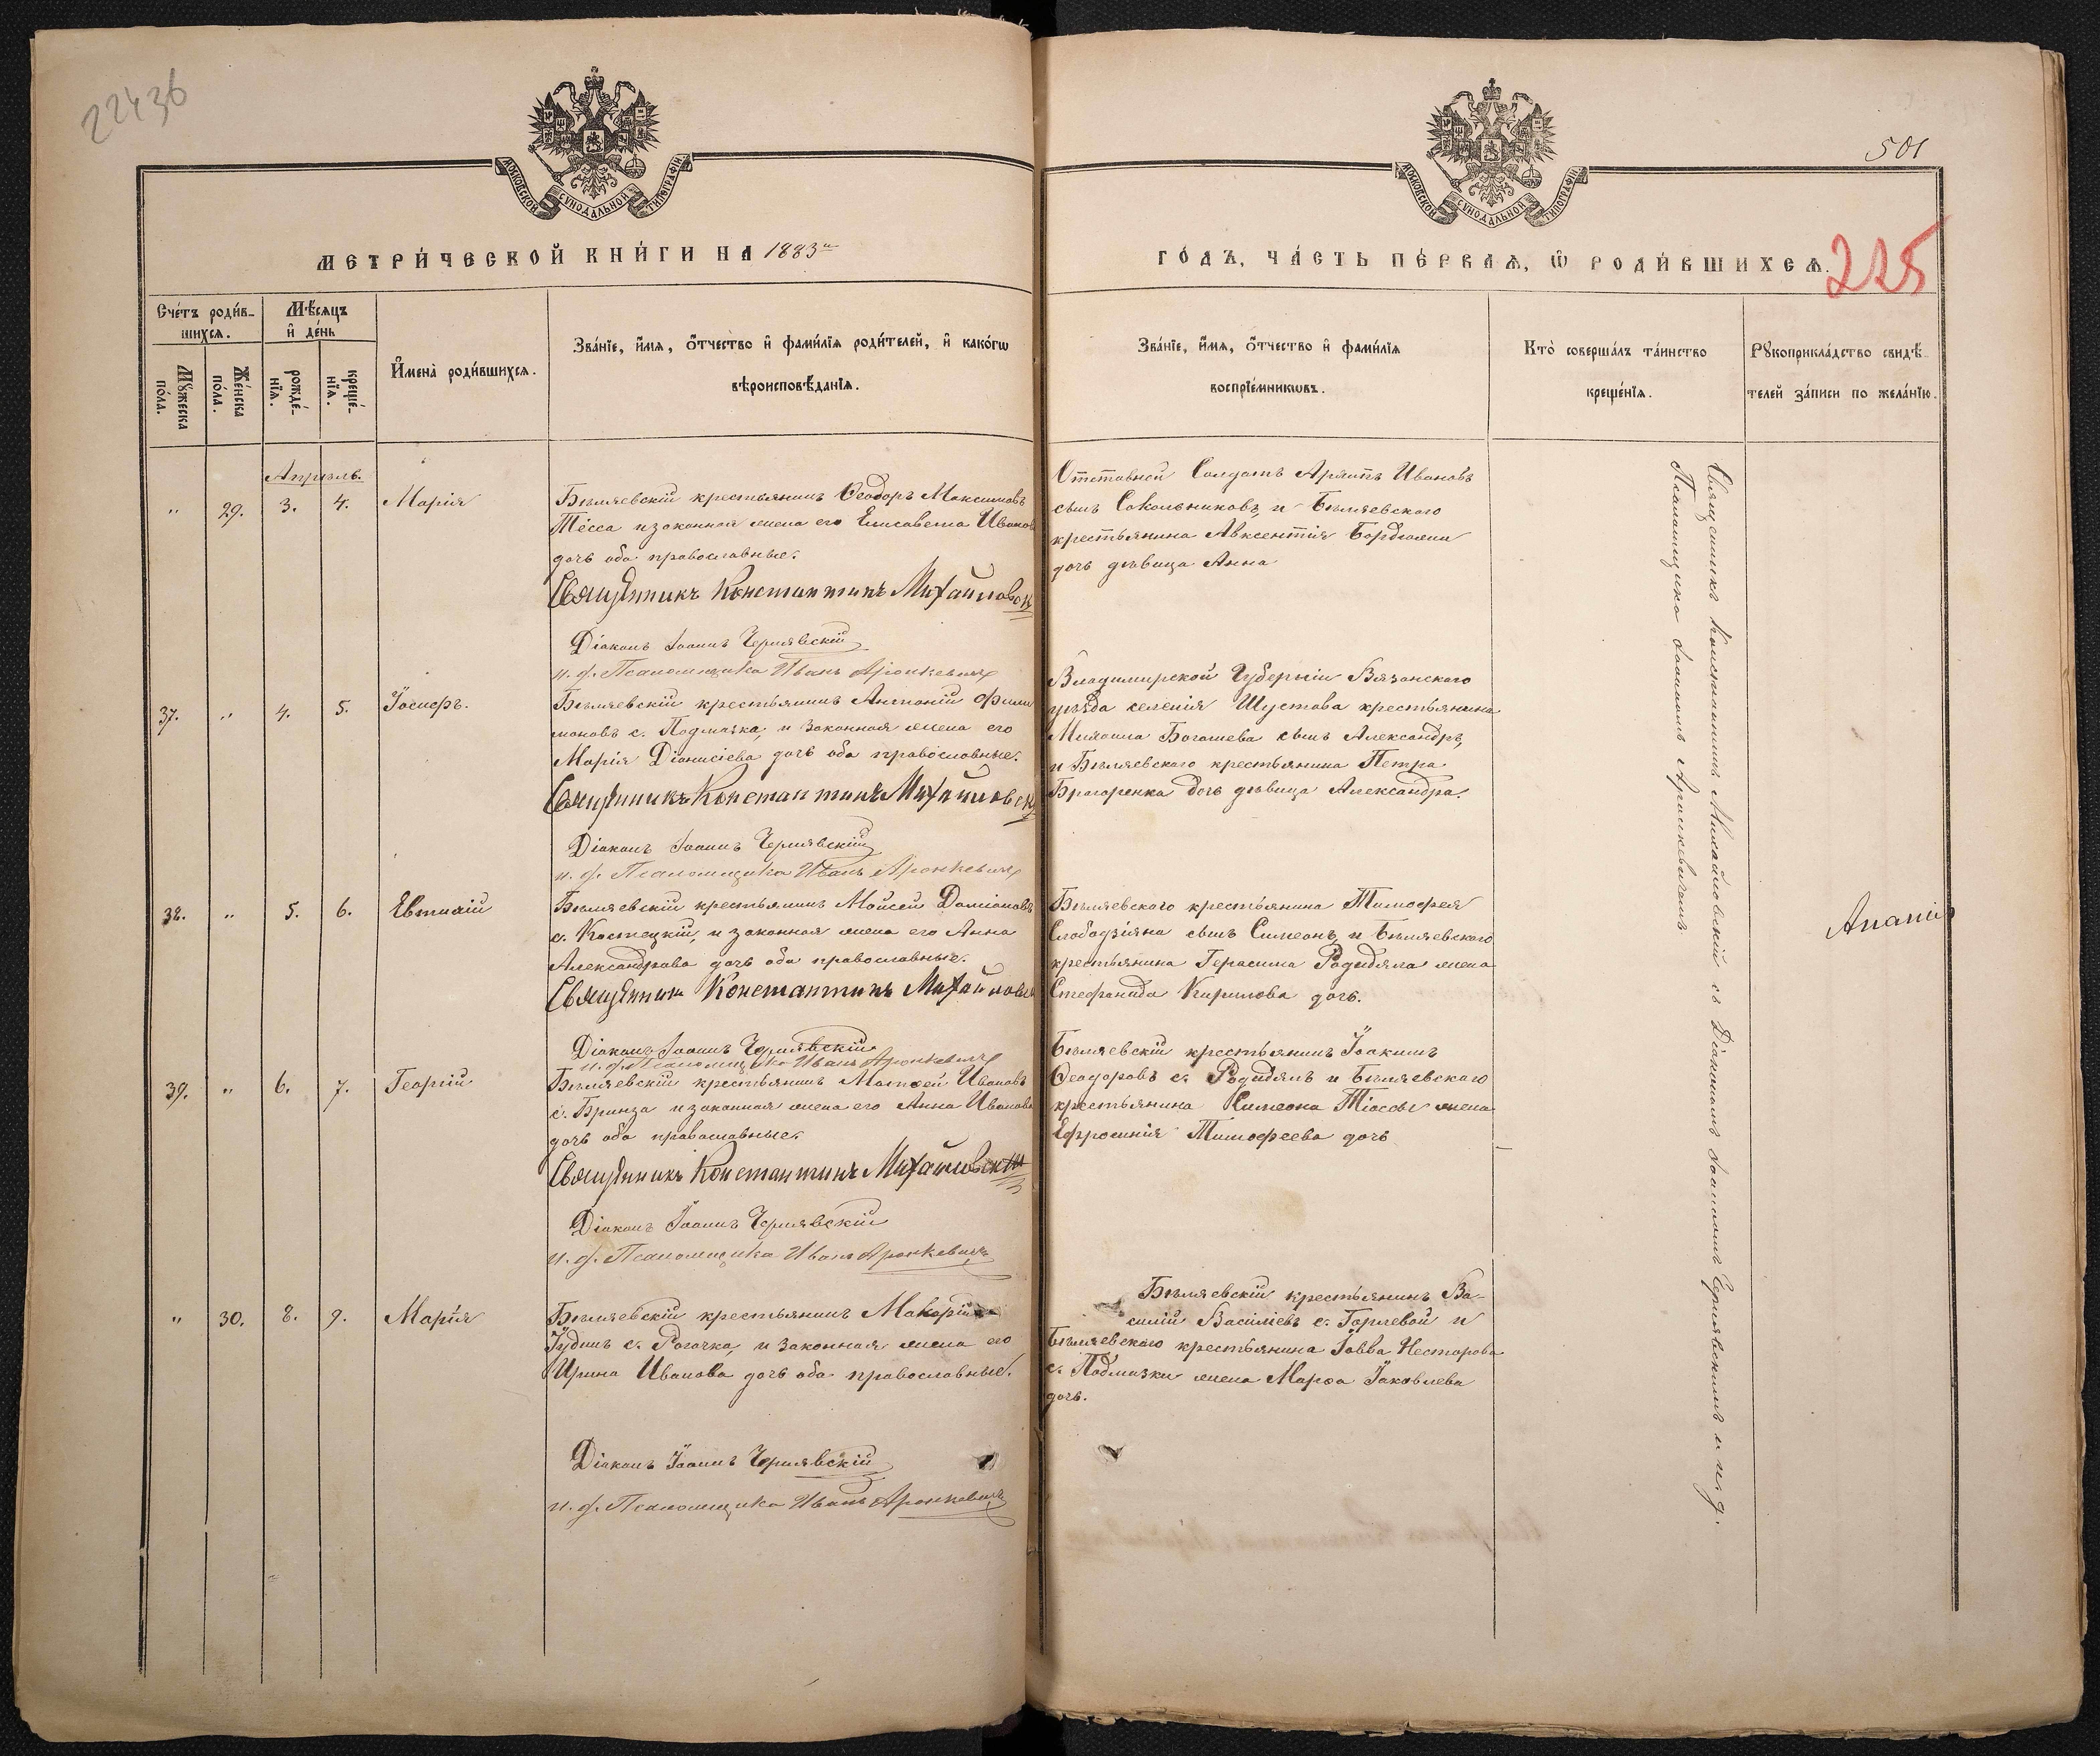 22436
501
225
МОСКОВСКОЙ СѴНОДАЛЬНОЙ ТИПОГРАФІИ
МОСКОВСКОЙ СѴНОДАЛЬНОЙ ТИПОГРАФІИ
МЕТРИ́ЧЕСКОЙ КНИ́ГИ НА 1883й
ГО́ДЪ, ЧА́СТЬ ПЕ́РВАѦ, Ѡ РОДИ́ВШИХСѦ.
Сче́тъ роди́в-
шихсѧ.
Мꙋжеска по́ла.
Же́нска по́ла.
Мѣ́сѧцъ
и де́нь
рожде́-
нїѧ.
креще́-
нїѧ.
И҆мена̀ роди́вшихсѧ.
Зва́нїе, и҆́мѧ, ѻ҆́тчество и҆ фами́лїѧ роди́телей, и҆ како́гѡ
вѣроисповѣ́данїѧ.
Зва́нїе, и҆́мѧ, ѻ҆́тчество и҆ фами́лїѧ
воспрїе́мникѡвъ.
Кто̀ соверша́лъ та́инство
креще́нїѧ.
Рꙋкоприкла́дство свидѣ́-
телей за́писи по жела́нїю.
Апрѣль.
" 29. 3. 4. Марія
Бѣляевскій крестьянинъ Ѳеодоръ Максимовъ
Тёсса и законная жена его Елисавета Иванов
дочь оба православные.
Священникъ Константинъ Михайловск
Діаконъ Іоаннъ Чернявскій
и. д. Псаломщика Иванъ Аронкевичъ
Отставной Солдатъ Архипъ Ивановъ
сынъ Сокольниковъ, и Бѣляевскаго
крестьянина Авксентія Бордюжи
дочь дѣвица Анна
37. " 4. 5. Іосифъ.
Бѣляевскій крестьянинъ Антоній Фили
моновъ с. Подмазка, и законная жена его
Марія Діонисіева дочь оба православные.
Священникъ Константинъ Михайловск
Діаконъ Іоаннъ Чернявскій
и. д. Псаломщика Иванъ Аронкевичъ
Владимирской Губерніи Вязанскаго
уѣзда селенія Шустова крестьянина
Михаила Богашева сынъ Александръ,
и Бѣляевскаго крестьянина Петра
дочь дѣвица Александра.
38. " 5. 6. Евтихій
Бѣляевскій крестьянинъ Моисей Даміановъ
с. Костецкій, и законная жена его Анна
Александрова дочь оба православные.
Священник Константинъ Михайловск
Діаконъ Іоаннъ Чернявскій
и. д. Псаломщика Иванъ Аронкевичъ
Бѣляевскаго крестьянина Тимофея
Слободзіяна сынъ Симеонъ, и Бѣляевскаго
крестьянина Герасима Родидяла жена
Стефанида Кирилова дочь.
39. " 6. 7. Георгій
Бѣляевскій крестьянинъ Матѳей Ивановъ
с. Бринза и законная жена его Анна Иванова
дочь оба православные.
Священникъ Константинъ Михайловскій
Діаконъ Іоаннъ Чернявскій
и. д. Псаломщика Иванъ Аронкевичъ
Бѣляевскій крестьянинъ Іоакимъ
Ѳеодоровъ с. Родидялъ и Бѣляевскаго
крестьянина Симеона жена
Ефросинія Тимофеева дочь
" 30. 8. 9. Марія
Бѣляевскій крестьянинъ Макарій
Іудинъ с. Рогачка, и законная жена его
Ирина Иванова дочь оба православные.
Діаконъ Іоаннъ Чернявскій
и. д. Псаломщика Иванъ Аронкевичъ
Бѣляевскій крестьянинъ Ва-
силій Василіевъ с. Горлевой и
Бѣляевскаго крестьянина Іовва Несторова
с. Подмазки жена Марѳа Іаковлева
дочь.
Священникъ Константинъ Михайловскій съ Діакономъ Іоанномъ Чернявскимъ и и. д.
Псаломщика Іоанномъ Аронкевичемъ
Анані